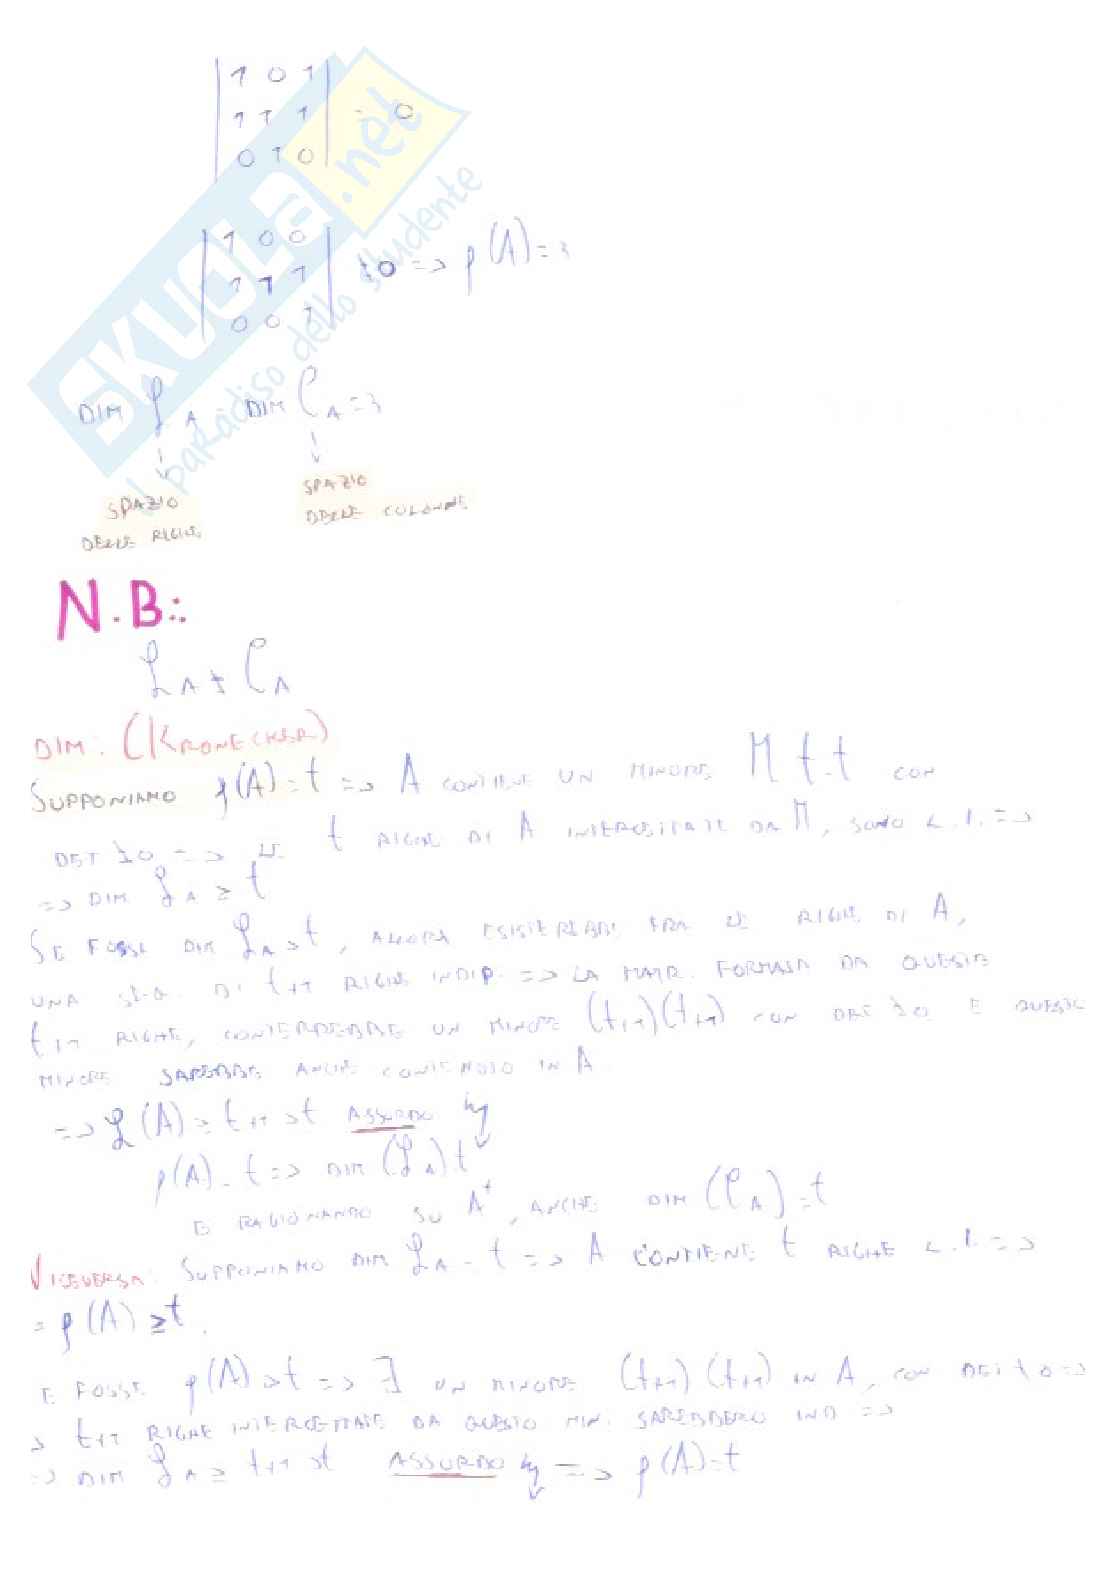 | 1 0 1 |
| 1 1 1 | = 0
| 0 1 0 |
| 1 0 0 |
| 1 1 1 | ≠ 0 => ρ(A) = 3
| 0 0 1 |
SKUOLA.net
il paradiso dello studente
DIM ℒA DIM CA = 3
SPAZIO DELLE RIGHE
SPAZIO DELLE COLONNE
N.B.:
ℒA ≠ CA
DIM: (KRONECKER)
SUPPONIAMO ρ(A) = t => A CONTIENE UN MINORE M t·t CON
DET ≠0 => LE t RIGHE DI A INTERCETTATE DA M, SONO L.I. =>
=> DIM ℒA ≥ t
SE FOSSE DIM ℒA > t, ALLORA ESISTEREBBE FRA LE RIGHE DI A,
UNA DI t+1 RIGHE INDIP. => LA MATR. FORMATA DA QUESTE
t+1 RIGHE, CONTERREBBE UN MINORE (t+1)(t+1) CON DET ≠0 E QUESTO
MINORE SAREBBE ANCHE CONTENUTO IN A.
=> ℒ(A) ≥ t+1 > t ASSURDO
ρ(A) = t => DIM (ℒA) t
E RAGIONANDO SU Aᵗ, ANCHE DIM (CA) = t
VICEVERSA: SUPPONIAMO DIM ℒA = t => A CONTIENE t RIGHE L.I. =>
= ρ(A) ≥ t.
E FOSSE ρ(A) > t => ∃ UN MINORE (t+1)(t+1) IN A, CON DET ≠0 =>
> t+1 RIGHE INTERCETTATE DA QUESTO MIN. SAREBBERO IND =>
=> DIM ℒA ≥ t+1 > t ASSURDO => ρ(A) = t